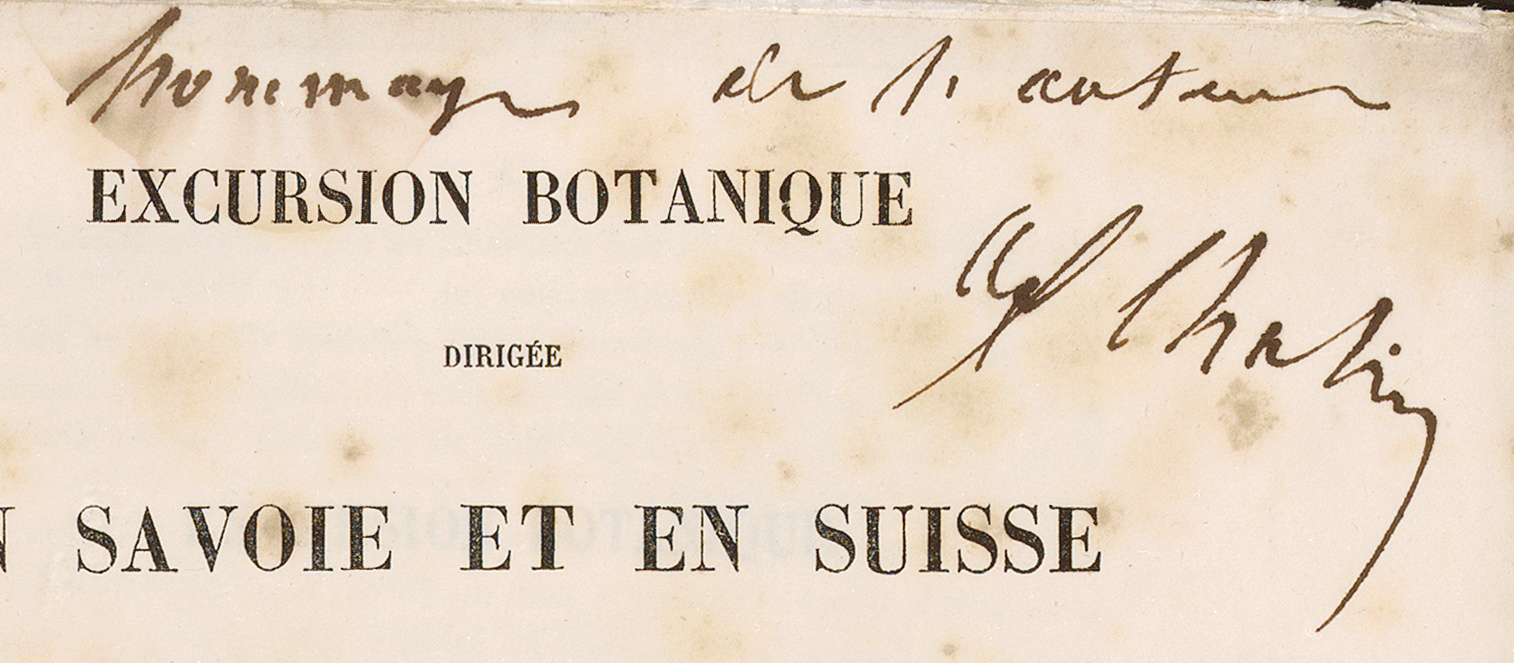 hommage de l'auteur
EXCURSION BOTANIQUE
Ad Chatin
DIRIGÉE
N SAVOIE ET EN SUISSE